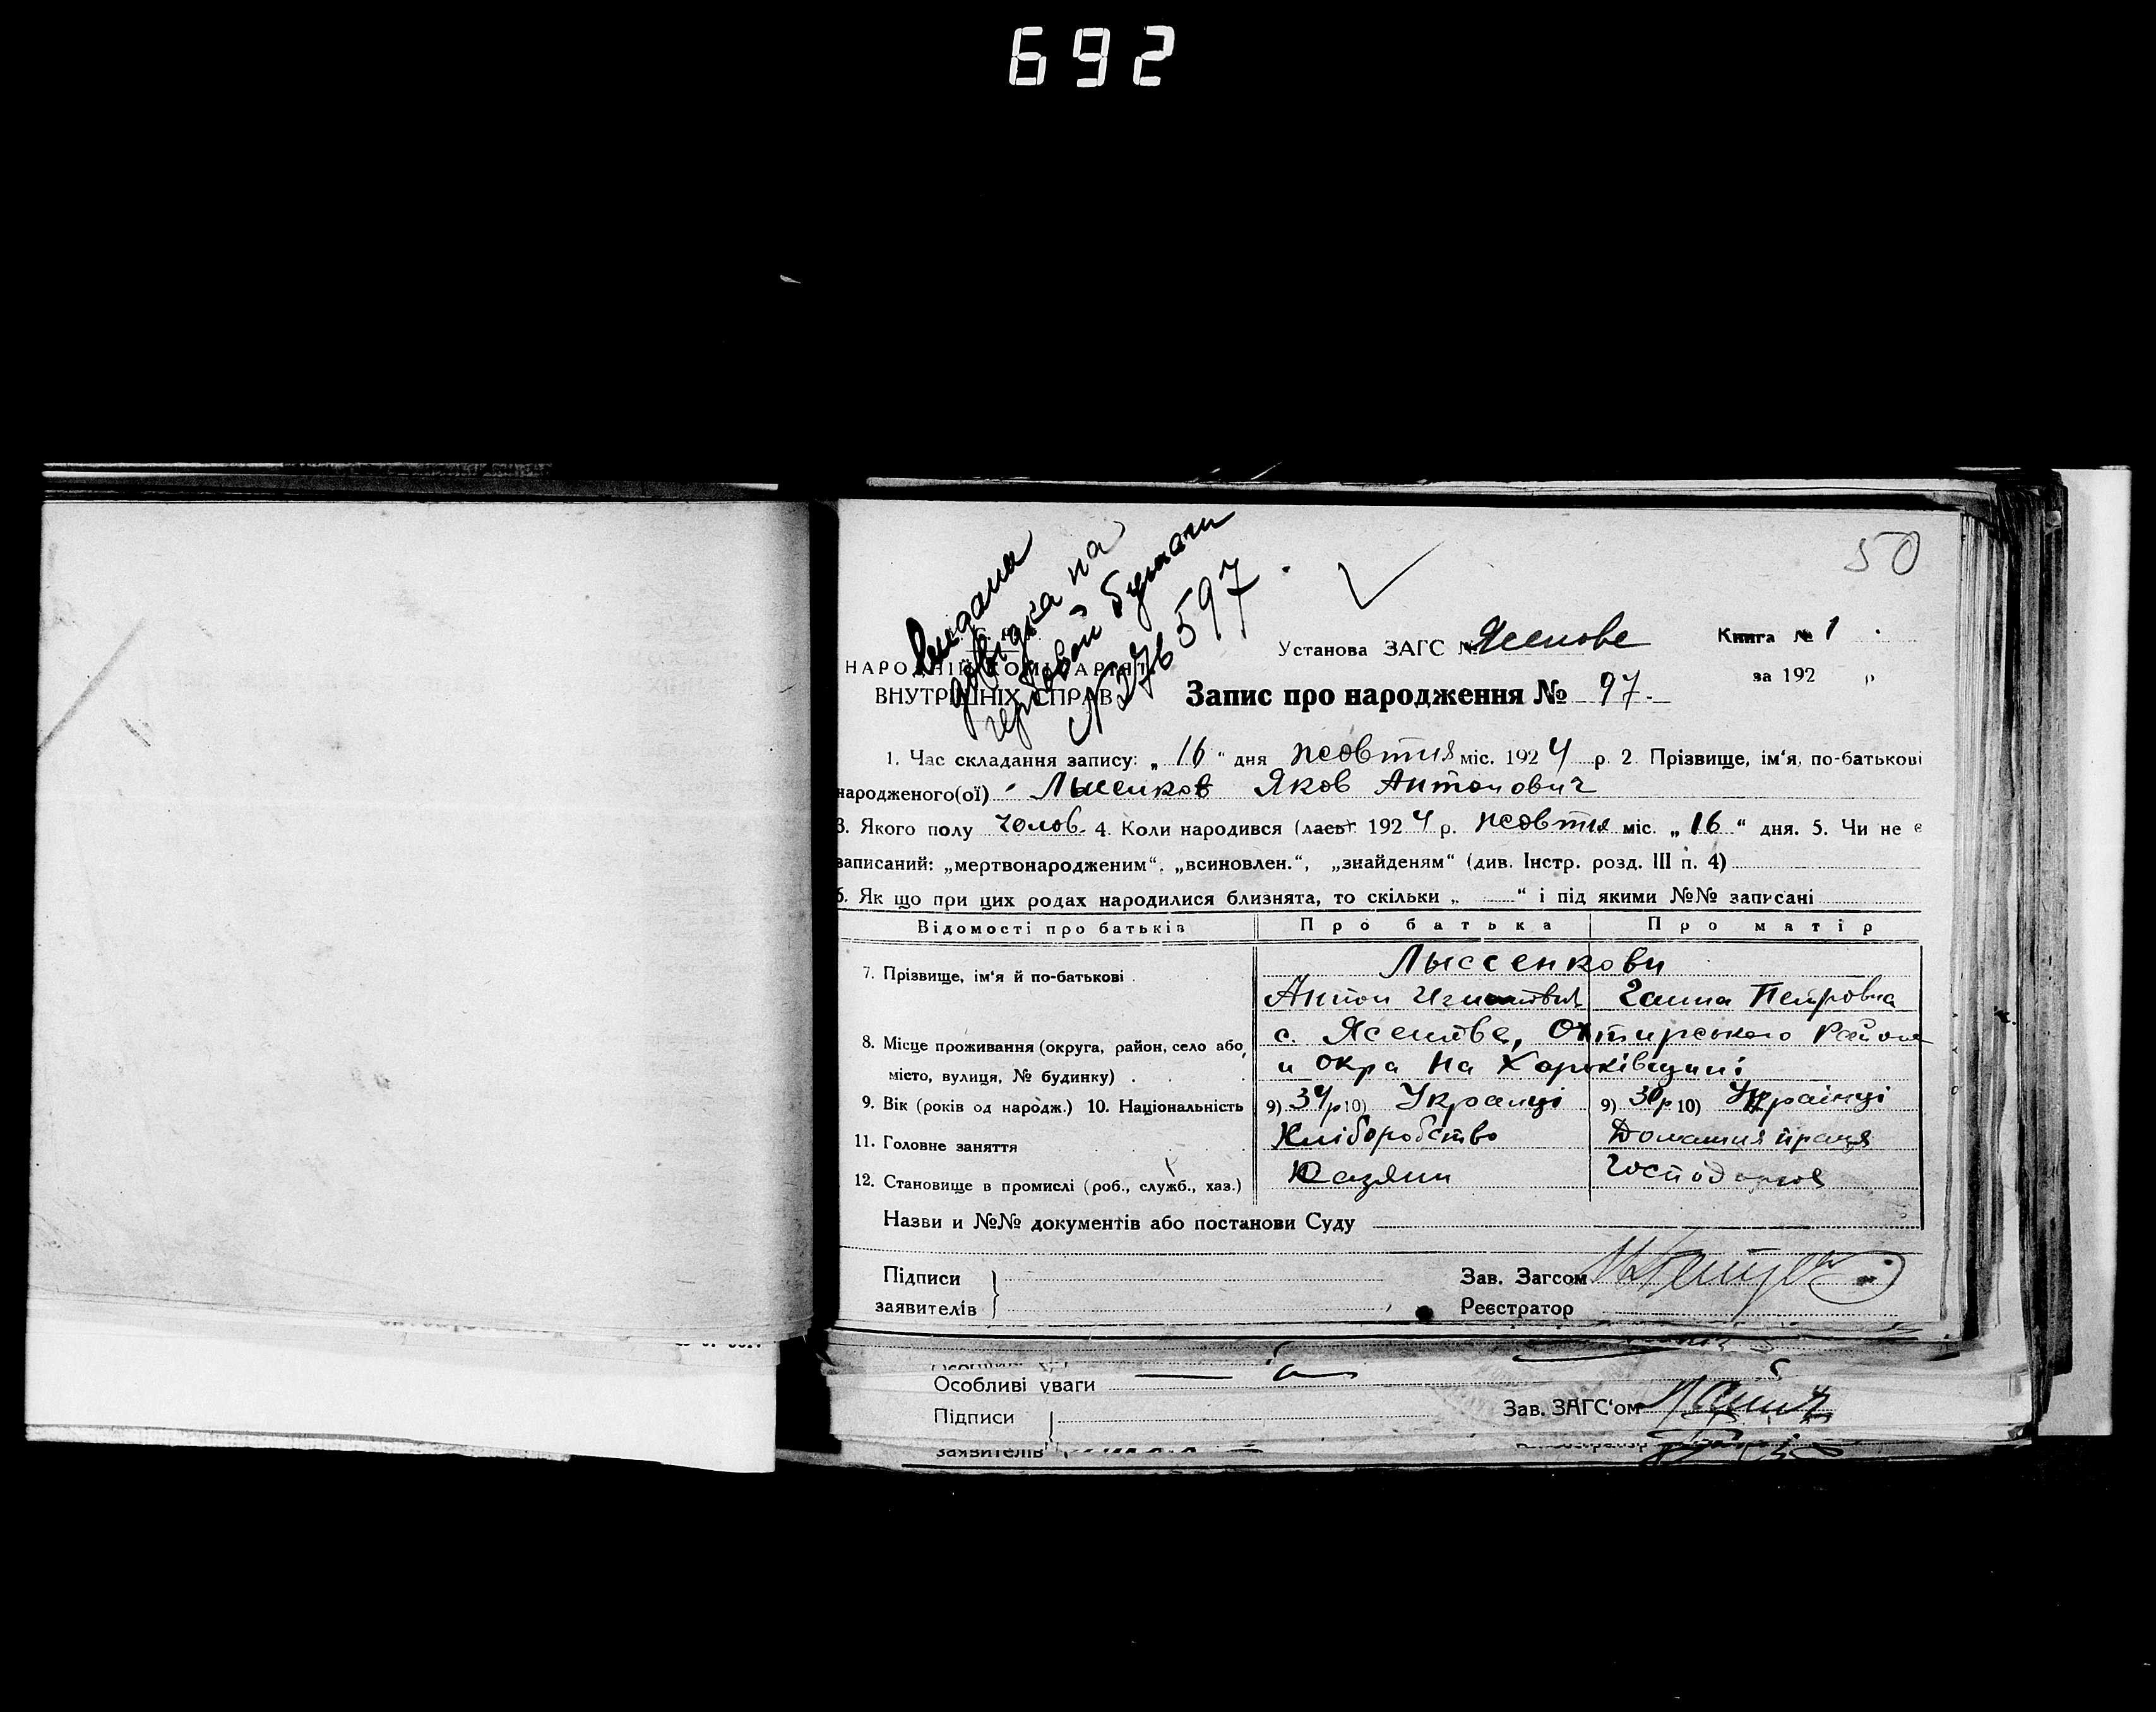 692
50
Видана
довідка на
гербовой бумаги
№ 276597.
Установа ЗАГС № Ясенове
Книга № 1
НАРОДНІЙ КОМІСАРІЯТ
ВНУТРІШНІХ СПРАВ
за 192 р
Запис про народження № 97.
1. Час складання запису: „16“ дня жовтня міс. 1924 р. 2. Прізвище, ім'я, по-батькові
народженого(ої) Лысенков Яков Антонович
3. Якого полу чолов. 4. Коли народився (лась) 1924 р. жовтня міс. „16“ дня. 5. Чи не є
записаний: „мертвонародженим“, „всиновлен.“, „знайденям“ (див. Інстр. розд. III п. 4)
6. Як що при цих родах народилися близнята, то скільки „ “ і під якими №№ записані
Відомості про батьків Про батька Про матір
7. Прізвище, ім'я й по-батькові Лыссенкови
Антон Ганна Петровна
8. Місце проживання (округа, район, село або с. Ясенове, Охтирського Району
місто, вулиця, № будинку) и окра на Харківщині
9. Вік (років од народж.) 10. Національність 9) 34р 10) Украінці 9) 30р 10) Украінці
11. Головне заняття Хліборобство Домашня праця
12. Становище в промислі (роб., служб., хаз.) Хазяин Господарка
Назви и №№ документів або постанови Суду
Підписи Зав. Загсом
заявителів Реєстратор
Особливі уваги
Підписи Зав. ЗАГС'ом
заявителів